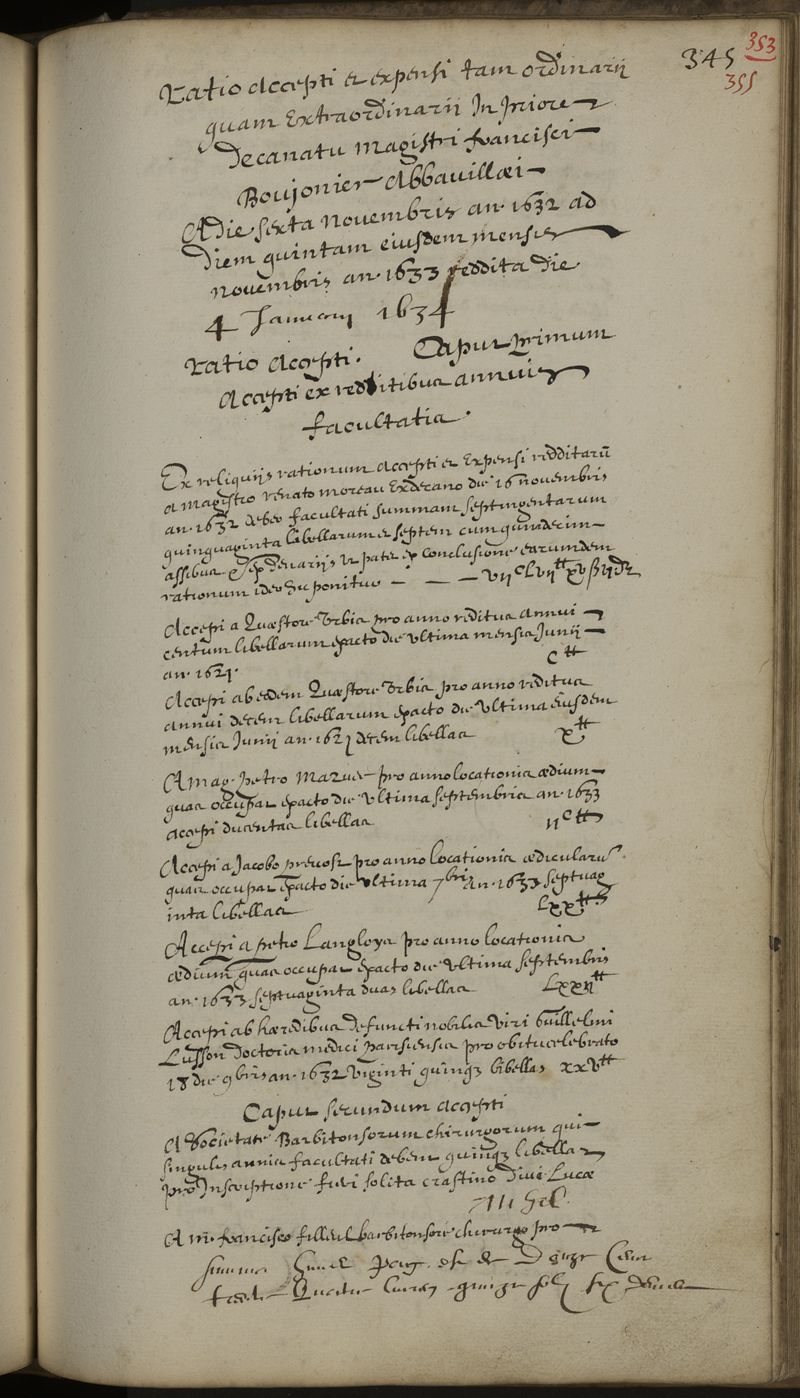 345 353
355
Ratio accepti et expensi tam ordinarii
quam Extraordinarii In priore
Decanatu magistri francisci
Boujonier Abbavillæi
A die sexta novembris an. 1632 ad
diem quintam eiusdem mensis
novembris an. 1633 reddita die
4 Januarij 1634
Ratio accepti. Caput primum
Accepti ex redditibus annuis
facultatis.
Ex reliquijs rationum accepti et Expensi redditarū
a magistro renato moreau Exdecano die 16 novembris
an. 1632 debeo facultati summam septingentarum
quinquaginta libellarum et septem cum quindecim
assibus & denariis ut patet ex conclusione earumdem
rationum ideo hic ponitur — — — vijᶜ Lvij tt xv ß
Accepi a Quæstore Urbis pro anno reditus annui
centum libellarum exacto die ultima mensis Junii
an. 1621. C tt
Accepi ab eodem Quæstore Urbis pro anno reditus
annui decem libellarum exacto die ultima eiusdem
mensis Junii an. 1621 decem libellas X tt
A mag. petro Mazuer pro anno locationis ædium
quas occupat exacto die ultima septembris an. 1633
accepi ducentas libellas IIᶜ tt
Accepi a Jacobo prevost pro anno locationis ædicularū
quas occupat exacto die ultima 7bris an. 1633 septuag
inta libellas Lxx tt
Accepi a petro Langloys pro anno locationis
ædium quas occupat exacto die ultima septembris
an. 1633 septuaginta duas libellas LxxII tt
Accepi ab hæredibus defuncti nobilis viri Guillelmi
Lusson doctoris medici parisiensis pro obitu celebrato
18 die 9bris an. 1632 viginti quinq3 libellas xxv tt
Caput secundum accepti
A Societate Barbitonsorum chirurgorum qui
singulis annis facultati debent quinq3 libellas
pro Inscriptione fieri solita crastino divi Lucæ
Nihil.
A m. francisco filleul barbitonsore chirurgo pro
summa
quinze